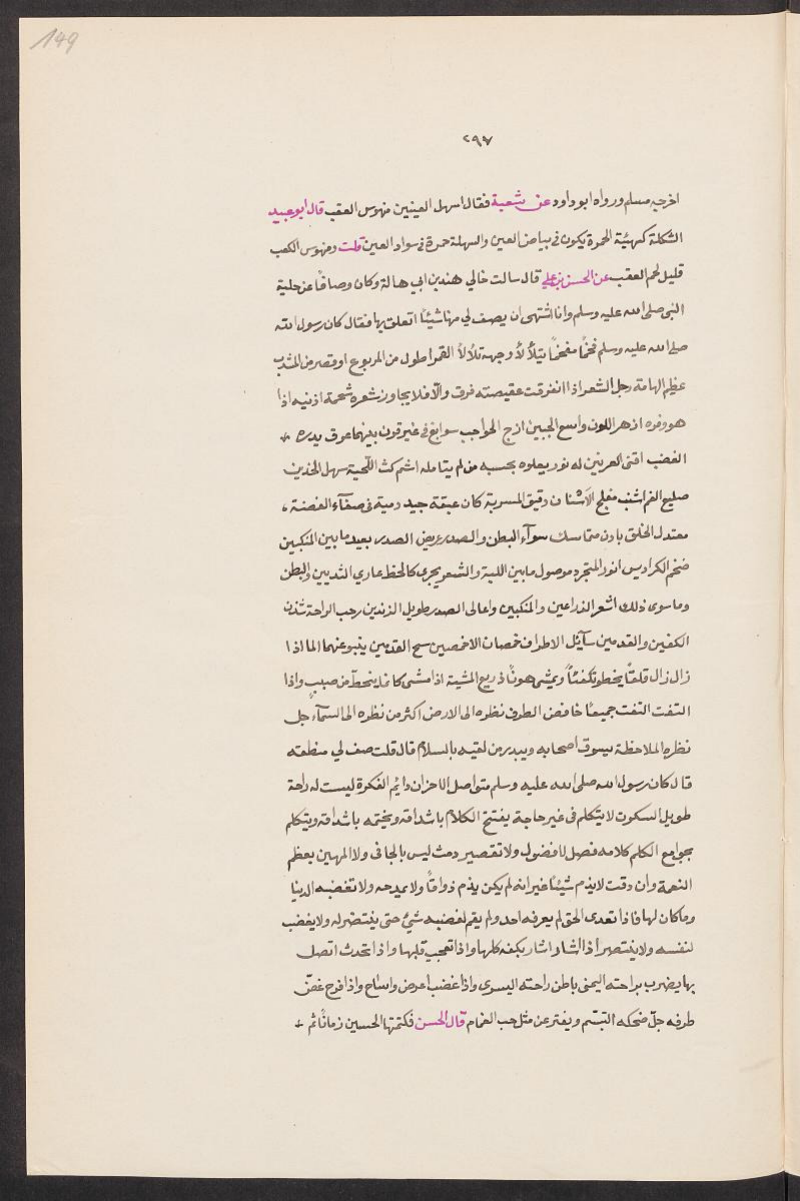 149
٢٩٧
اخرجه مسلم ورواه ابو داود عن شعبة فقال اسهل العينين منهوس العقب قال ابو عبيد
الشكلة كهيئة الحمرة يكون في بياض العين والسهلة حمرة في سواد العين قلت ومنهوس الكعب
قليل لحم العقب عن الحسن بن علي قال سالت خالي هند بن ابي هالة وكان وصافًا عن حلية
النبي صلى الله عليه وسلم وانا اشتهى ان يصف لي منها شيئًا اتعلق بها فقال كان رسول الله
صلى الله عليه وسلم فخمًا مفخمًا يتلألأ وجهه تلألأ القمر اطول من المربوع اوقصر من المشذب
عظيم الهامة رجل الشعر اذا انفرقت عقيصته فرق والّا فلا يجاوز شعره شحمة اذنيه اذا
هو وفره ازهر اللون واسع الجبين ازج الحواجب سوابغ في غير قرن بينهما عرق يدره
الغضب اقنى العرنين له نور يعلوه يحسبه من لم يتامله اشم كث اللّحية سهل الخدين
ضليع الفم اشنب مفلج الاسنان دقيق المسربة كان عنقه جيد دمية في صفآء الفضة ،
معتدل الخلق بادن متماسك سوآء البطن والصدر عريض الصدر بعيد ما بين المنكبين
ضخم الكراديس انور المتجرد موصول ما بين اللبة والشعر يجرى كالخط عاري الثديين والبطن
وما سوى ذلك اشعر الذراعين والمنكبين واعالى الصدر طويل الزندين رحب الراحة شثن
الكفين والقدمين سآئل الاطراف خمصان الاخمصين مسح القدمين ينبو عنهما الما اذا
زال زال قلعًا يخطو تكفئًا ويمشى هونًا ذريع المشية اذا مشى كانما ينحطّ من صبب واذا
التفت التفت جميعًا خافض الطرف نظره الى الارض اكثر من نظره الى السمآء جل
نظره الملاحظة يسوق اصحابه ويبدر من لقيه بالسلام قال قلت صف لي منطقه
قال كان رسول الله صلى الله عليه وسلم متواصل الاحزان دايم الفكرة ليست له راحة
طويل السكوت لا يتكلم في غير حاجة يفتتح الكلام باشداقه ويختمه باشداقه ويتكلم
بجوامع الكلم كلامه فصل لا فضول ولا تقصير دمث ليس بالجافى ولا المهين يعظم
النعمة وان دقت لا يذم شيئًا غير انه لم يكن يذم ذواقًا ولا يمدحه ولا تغضبه الدنيا
وما كان لها فاذا تعدى الحق لم يعرفه احد ولم يقم لغضبه شئ حتى ينتصر له ولا يغضب
لنفسه ولا ينتصر أذا اشار اشار بكفه كلها واذا تعجب قلبها واذا تحدث اتصل
بها يضرب براحته اليمنى باطن راحته اليسرى واذا غضب اعرض واشاح واذا فرح غضّ
طرفه جلّ ضحكه التبسّم ويفتر عن مثل حب الغمام قال الحسن فكتمتها الحسين زمانًا ثم